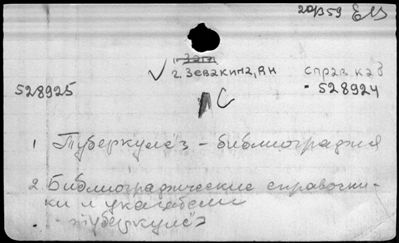 20/3 59
2. Зевакина, А Н
справ каб
528925
528924
1 Туберкулёз - библиография
2. Библиографические справочни-
ки и указатели
- туберкулёз